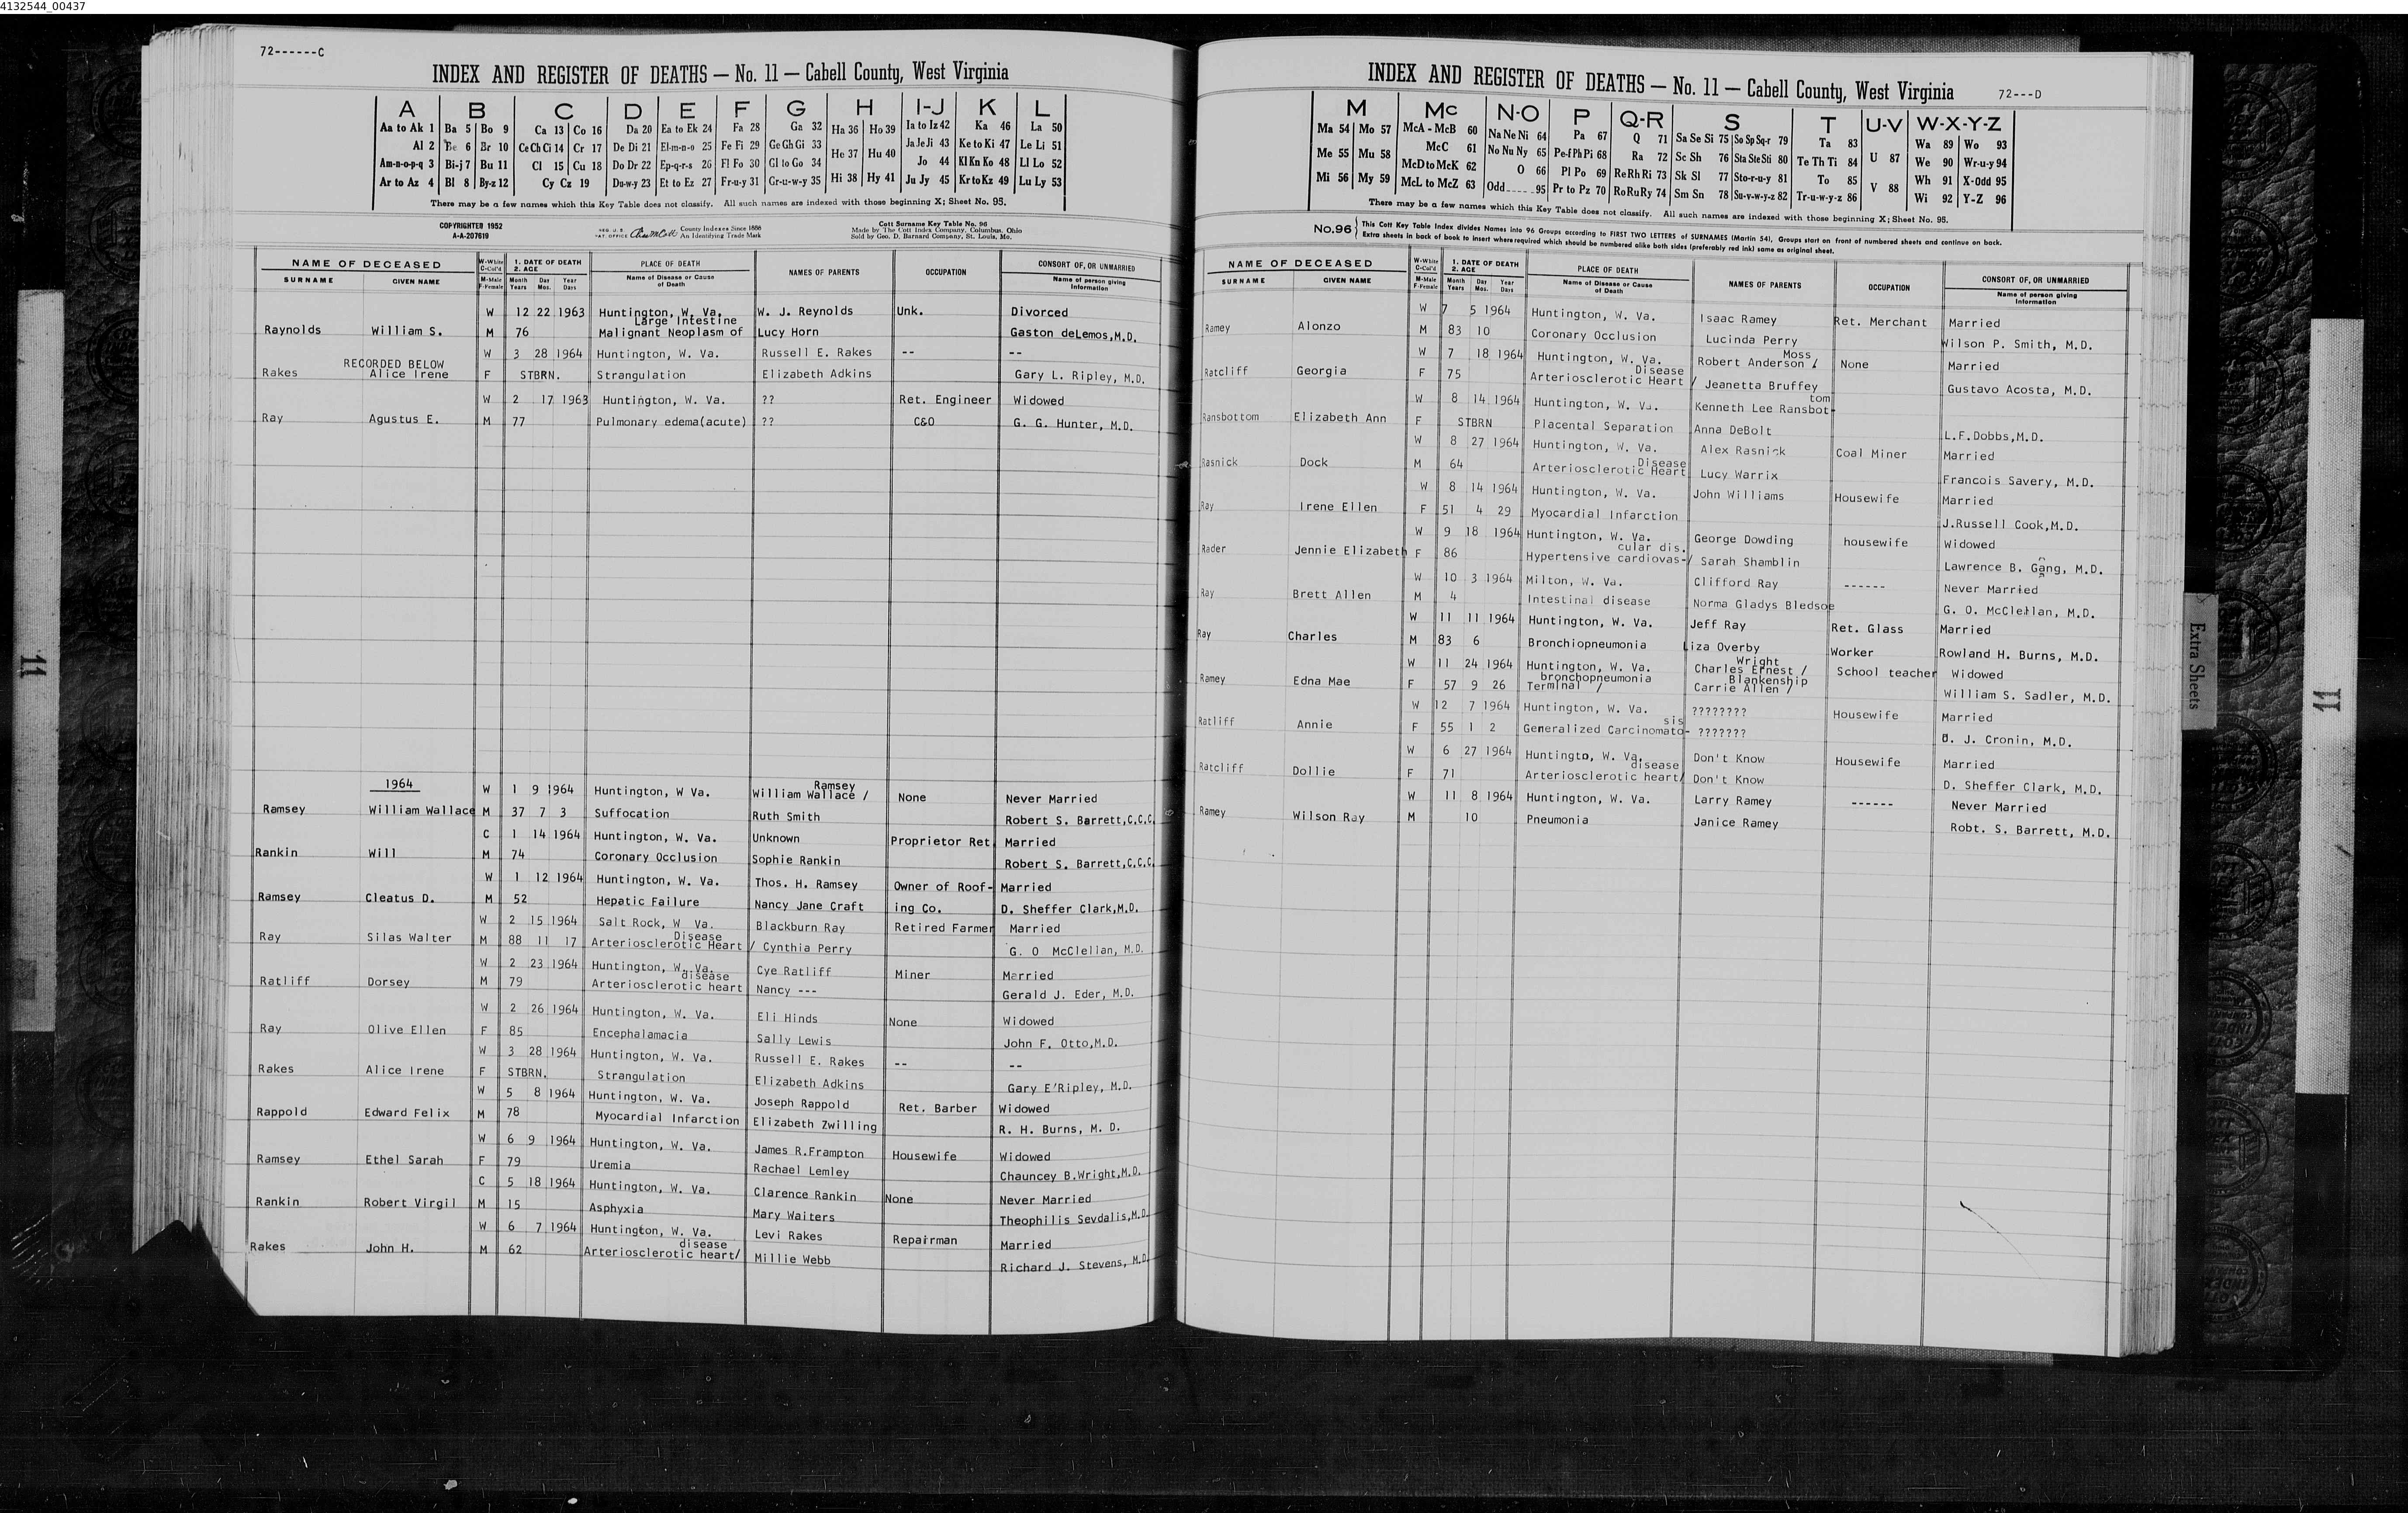 4132544_00437
72------C
INDEX AND REGISTER OF DEATHS — No. 11 — Cabell County, West Virginia
A B C D E F G H I-J K L
Aa to Ak 1 Ba 5 Bo 9 Ca 13 Co 16 Da 20 Ea to Ek 24 Fa 28 Ga 32 Ha 36 Ho 39 Ia to Iz 42 Ka 46 La 50
Al 2 Be 6 Br 10 Ce Ch Ci 14 Cr 17 De Di 21 El-m-n-o 25 Fe Fi 29 Ge Gh Gi 33 He 37 Hu 40 Ja Je Ji 43 Ke to Ki 47 Le Li 51
Am-n-o-p-q 3 Bi-j 7 Bu 11 Cl 15 Cu 18 Do Dr 22 Ep-q-r-s 26 Fl Fo 30 Gl to Go 34 Hi 38 Hy 41 Jo 44 Kl Kn Ko 48 Ll Lo 52
Ar to Az 4 Bl 8 By-z 12 Cy Cz 19 Du-w-y 23 Et to Ez 27 Fr-u-y 31 Gr-u-w-y 35 Ju Jy 45 Kr to Kz 49 Lu Ly 53
There may be a few names which this Key Table does not classify. All such names are indexed with those beginning X; Sheet No. 95.
COPYRIGHTED 1952
A-A-207619
REG. U. S. PAT. OFFICE County Indexes Since 1888
An Identifying Trade Mark
Cott Surname Key Table No. 96
Made by The Cott Index Company, Columbus, Ohio
Sold by Geo. D. Barnard Company, St. Louis, Mo.
NAME OF DECEASED
SURNAME GIVEN NAME
W-White C-Col'd M-Male F-Female
1. DATE OF DEATH 2. AGE
Month Day Year
Years Mos. Days
PLACE OF DEATH
Name of Disease or Cause of Death
NAMES OF PARENTS
OCCUPATION
CONSORT OF, OR UNMARRIED
Name of person giving Information
W 12 22 1963 Huntington, W. Va. W. J. Reynolds Unk. Divorced
Large Intestine
Raynolds William S. M 76 Malignant Neoplasm of Lucy Horn Gaston deLemos,M.D.
W 3 28 1964 Huntington, W. Va. Russell E. Rakes -- --
RECORDED BELOW
Rakes Alice Irene F STBRN. Strangulation Elizabeth Adkins Gary L. Ripley, M.D.
W 2 17 1963 Huntington, W. Va. ?? Ret. Engineer Widowed
Ray Agustus E. M 77 Pulmonary edema(acute) ?? C&O G. G. Hunter, M.D.
1964
Ramsey
W 1 9 1964 Huntington, W Va. William Wallace / None Never Married
Ramsey William Wallace M 37 7 3 Suffocation Ruth Smith Robert S. Barrett,C.C.C.
C 1 14 1964 Huntington, W. Va. Unknown Proprietor Ret. Married
Rankin Will M 74 Coronary Occlusion Sophie Rankin Robert S. Barrett,C.C.C.
W 1 12 1964 Huntington, W. Va. Thos. H. Ramsey Owner of Roof- Married
Ramsey Cleatus D. M 52 Hepatic Failure Nancy Jane Craft ing Co. D. Sheffer Clark,M.D.
W 2 15 1964 Salt Rock, W Va. Blackburn Ray Retired Farmer Married
Disease
Ray Silas Walter M 88 11 17 Arteriosclerotic Heart / Cynthia Perry G. O McClellan, M.D.
W 2 23 1964 Huntington, W. Va. Cye Ratliff Miner Married
disease
Ratliff Dorsey M 79 Arteriosclerotic heart Nancy --- Gerald J. Eder, M.D.
W 2 26 1964 Huntington, W. Va. Eli Hinds None Widowed
Ray Olive Ellen F 85 Encephalamacia Sally Lewis John F. Otto,M.D.
W 3 28 1964 Huntington, W. Va. Russell E. Rakes -- --
Rakes Alice Irene F STBRN. Strangulation Elizabeth Adkins Gary E'Ripley, M.D.
W 5 8 1964 Huntington, W. Va. Joseph Rappold Ret. Barber Widowed
Rappold Edward Felix M 78 Myocardial Infarction Elizabeth Zwilling R. H. Burns, M. D.
W 6 9 1964 Huntington, W. Va. James R.Frampton Housewife Widowed
Ramsey Ethel Sarah F 79 Uremia Rachael Lemley Chauncey B.Wright,M.D.
C 5 18 1964 Huntington, W. Va. Clarence Rankin None Never Married
Rankin Robert Virgil M 15 Asphyxia Mary Waiters Theophilis Sevdalis,M.D.
W 6 7 1964 Huntington, W. Va. Levi Rakes Repairman Married
disease
Rakes John H. M 62 Arteriosclerotic heart/ Millie Webb Richard J. Stevens, M.D.
11
INDEX AND REGISTER OF DEATHS — No. 11 — Cabell County, West Virginia
72---D
M Mc N-O P Q-R S T U-V W-X-Y-Z
Ma 54 Mo 57 McA - McB 60 Na Ne Ni 64 Pa 67 Q 71 Sa Se Si 75 So Sp Sq-r 79 Ta 83 U 87 Wa 89 Wo 93
Me 55 Mu 58 McC 61 No Nu Ny 65 Pe-f Ph Pi 68 Ra 72 Sc Sh 76 Sta Ste Sti 80 Te Th Ti 84 We 90 Wr-u-y 94
McD to McK 62 O 66 Pl Po 69 Re Rh Ri 73 Sk Sl 77 Sto-r-u-y 81 To 85 V 88 Wh 91 X-Odd 95
Mi 56 My 59 McL to McZ 63 Odd 95 Pr to Pz 70 Ro Ru Ry 74 Sm Sn 78 Su-v-w-y-z 82 Tr-u-w-y-z 86 Wi 92 Y-Z 96
There may be a few names which this Key Table does not classify. All such names are indexed with those beginning X; Sheet No. 95.
No.96 This Cott Key Table Index divides Names into 96 Groups according to FIRST TWO LETTERS of SURNAMES (Martin 54), Groups start on front of numbered sheets and continue on back.
Extra sheets in back of book to insert where required which should be numbered alike both sides (preferably red ink) same as original sheet.
NAME OF DECEASED
SURNAME GIVEN NAME
W-White C-Col'd M-Male F-Female
1. DATE OF DEATH 2. AGE
Month Day Year
Years Mos. Days
PLACE OF DEATH
Name of Disease or Cause of Death
NAMES OF PARENTS
OCCUPATION
CONSORT OF, OR UNMARRIED
Name of person giving Information
W 7 5 1964 Huntington, W. Va. Isaac Ramey Ret. Merchant Married
Ramey Alonzo M 83 10 Coronary Occlusion Lucinda Perry Wilson P. Smith, M.D.
Moss
W 7 18 1964 Huntington, W. Va. Robert Anderson / None Married
Disease
Ratcliff Georgia F 75 Arteriosclerotic Heart / Jeanetta Bruffey Gustavo Acosta, M.D.
tom
W 8 14 1964 Huntington, W. Va. Kenneth Lee Ransbot-
Ransbottom Elizabeth Ann F STBRN Placental Separation Anna DeBolt L.F.Dobbs,M.D.
W 8 27 1964 Huntington, W. Va. Alex Rasnick Coal Miner Married
Disease
Rasnick Dock M 64 Arteriosclerotic Heart Lucy Warrix Francois Savery, M.D.
W 8 14 1964 Huntington, W. Va. John Williams Housewife Married
Ray Irene Ellen F 51 4 29 Myocardial Infarction J.Russell Cook,M.D.
W 9 18 1964 Huntington, W. Va. George Dowding housewife Widowed
cular dis.
Rader Jennie Elizabeth F 86 Hypertensive cardiovas-/ Sarah Shamblin Lawrence B. Gang, M.D.
W 10 3 1964 Milton, W. Va. Clifford Ray ------ Never Married
Ray Brett Allen M 4 Intestinal disease Norma Gladys Bledsoe G. O. McClellan, M.D.
W 11 11 1964 Huntington, W. Va. Jeff Ray Ret. Glass Married
Ray Charles M 83 6 Bronchiopneumonia Liza Overby Worker Rowland H. Burns, M.D.
Wright
W 11 24 1964 Huntington, W. Va. Charles Ernest / School teacher Widowed
bronchopneumonia Blankenship
Ramey Edna Mae F 57 9 26 Terminal / Carrie Allen / William S. Sadler, M.D.
W 12 7 1964 Huntington, W. Va. ???????? Housewife Married
sis
Ratliff Annie F 55 1 2 Generalized Carcinomato- ??????? J. Cronin, M.D.
W 6 27 1964 Huntingto, W. Va. Don't Know Housewife Married
disease
Ratcliff Dollie F 71 Arteriosclerotic heart/ Don't Know D. Sheffer Clark, M.D.
W 11 8 1964 Huntington, W. Va. Larry Ramey ------ Never Married
Ramey Wilson Ray M 10 Pneumonia Janice Ramey Robt. S. Barrett, M.D.
Extra Sheets
11